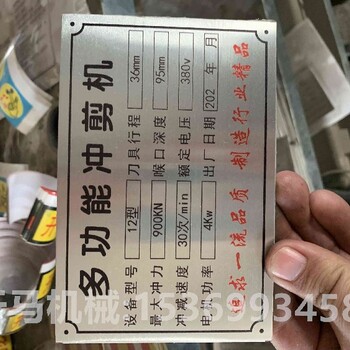 多功能冲剪机
设备型号 12型 刀具行程 36mm
最大冲力 900KN 喉口深度 95mm
冲减速度 30次/min 额定电压 380v
电机功率 4Kw 出厂日期 202 年 月
追求一流品质 制造行业精品
马机械